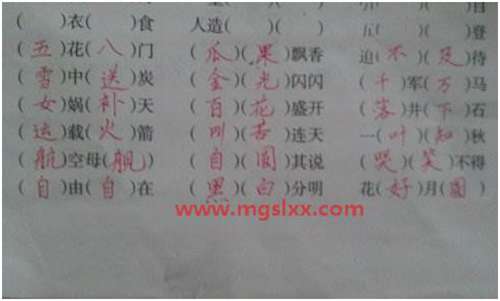 ( )衣( )食 人造( )( ) 五( )( )登
(五)花(八)门 (瓜)(果)飘香 迫(不)(及)待
(雪)中(送)炭 (金)(光)闪闪 (千)军(万)马
(女)娲(补)天 (百)(花)盛开 (落)井(下)石
(运)载(火)箭 (叫)(苦)连天 一(叶)(知)秋
(航)空母(舰) (自)(圆)其说 (哭)(笑)不得
(自)由(自)在 (黑)(白)分明 花(好)月(圆)
www.mgslxx.com